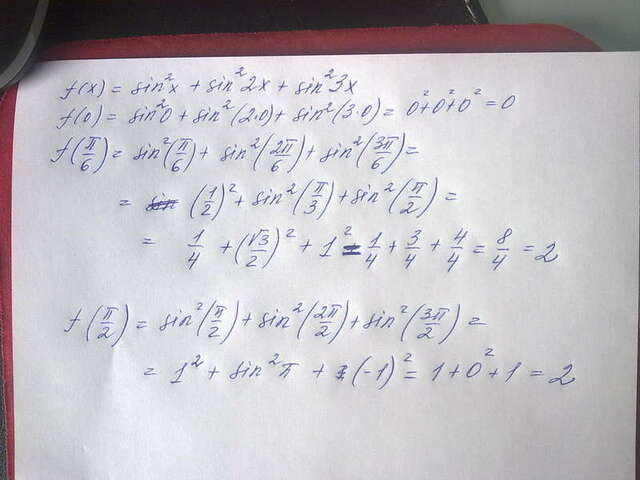 f(x) = sin²x + sin²2x + sin²3x
f(0) = sin²0 + sin²(2·0) + sin²(3·0) = 0²+0²+0² = 0
f(π/6) = sin²(π/6) + sin²(2π/6) + sin²(3π/6) =
= (1/2)² + sin²(π/3) + sin²(π/2) =
= 1/4 + (√3/2)² + 1² = 1/4 + 3/4 + 4/4 = 8/4 = 2
f(π/2) = sin²(π/2) + sin²(2π/2) + sin²(3π/2) =
= 1² + sin²π + (-1)² = 1 + 0² + 1 = 2